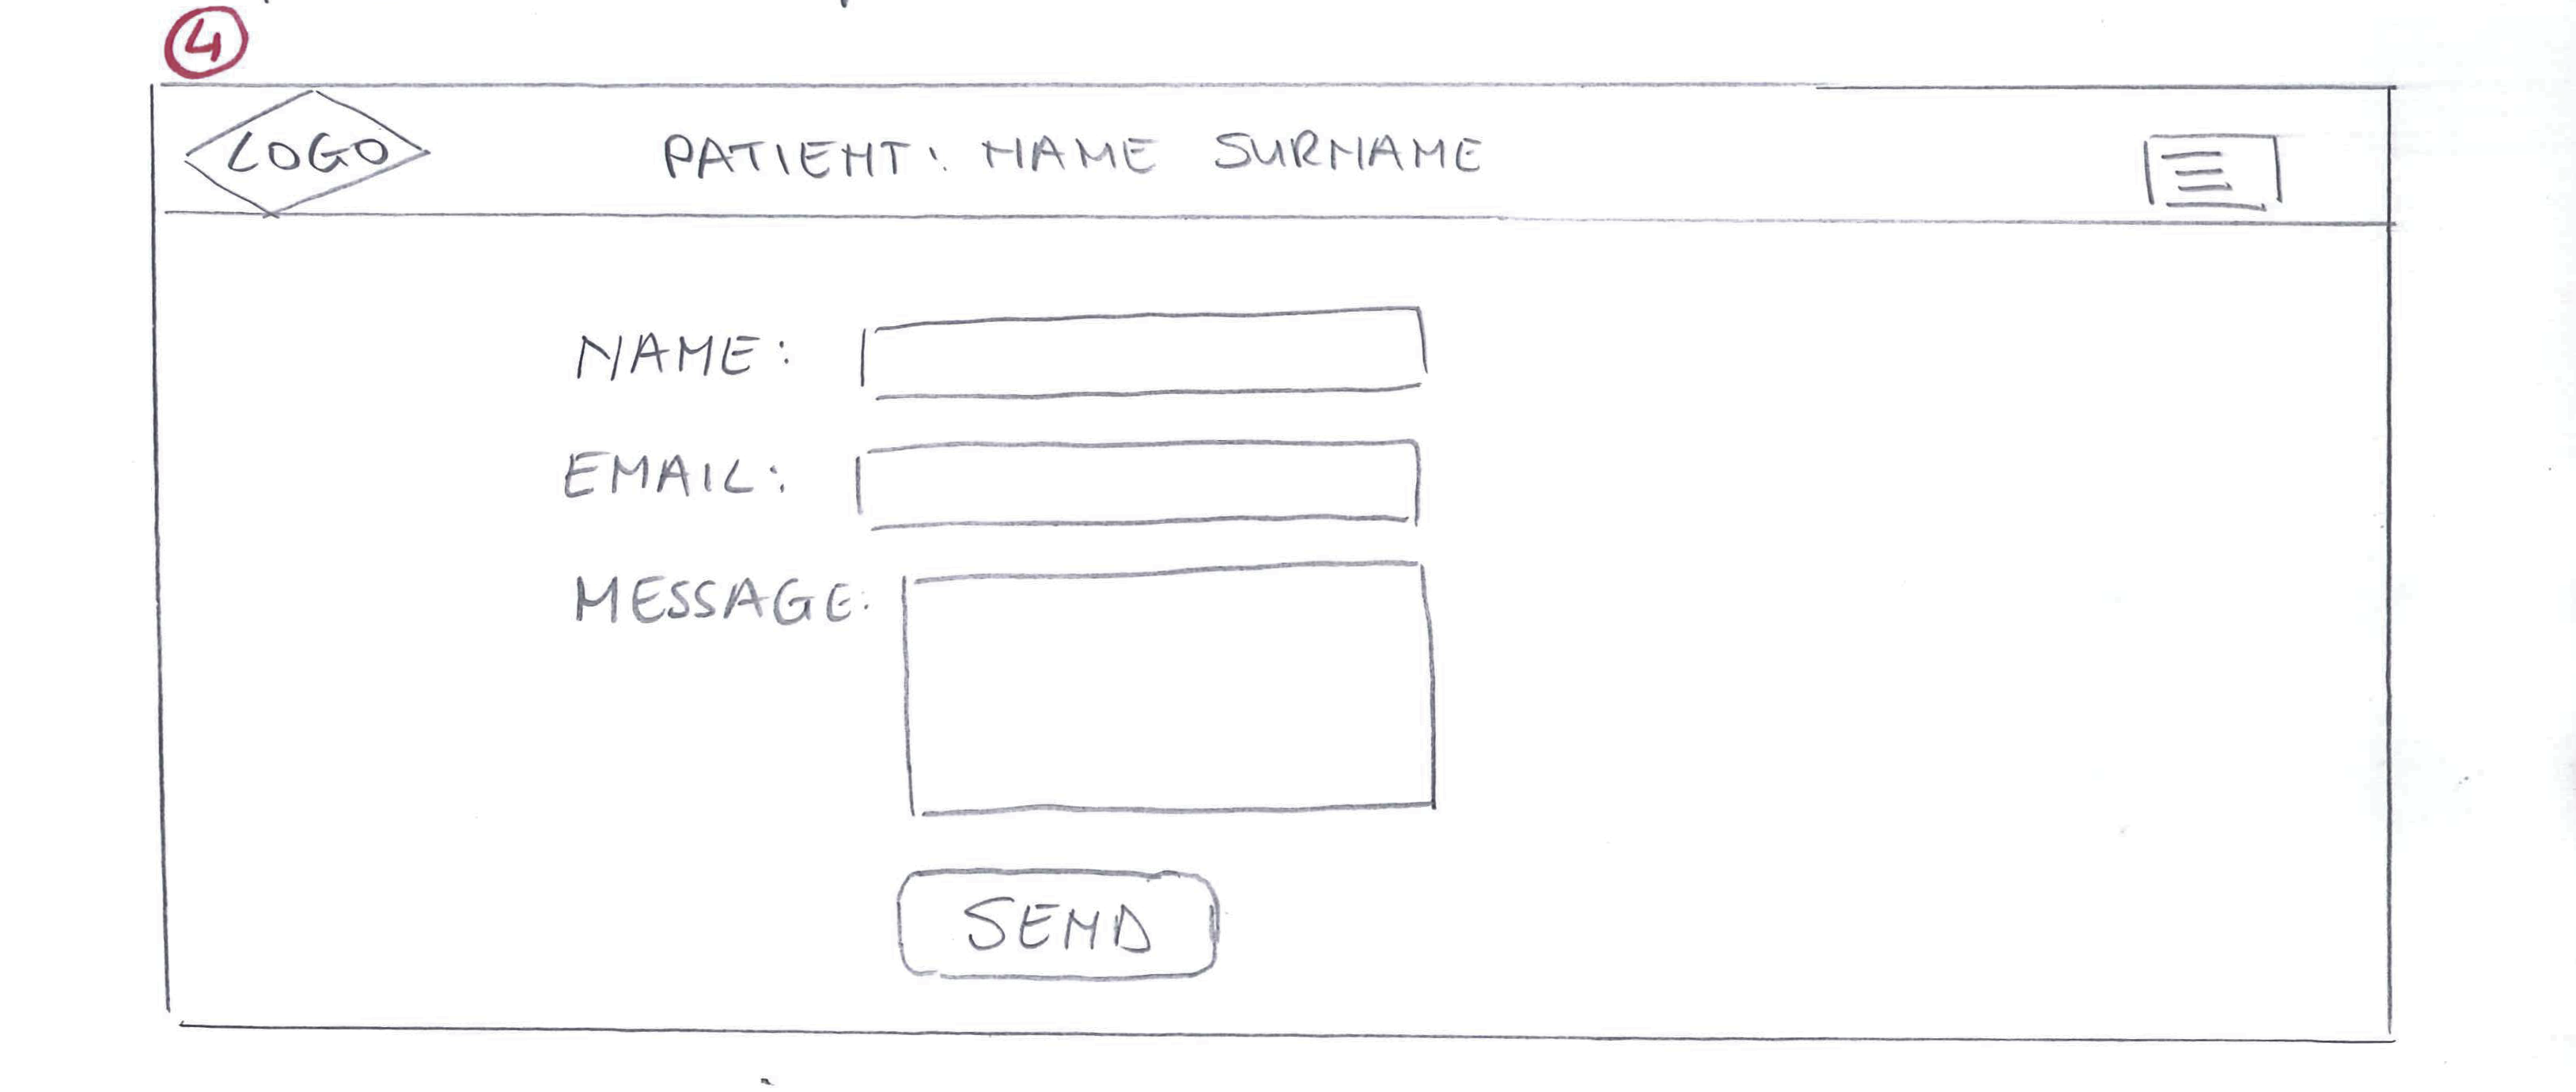 4
LOGO
PATIENT: NAME SURNAME
NAME:
EMAIL:
MESSAGE:
SEND